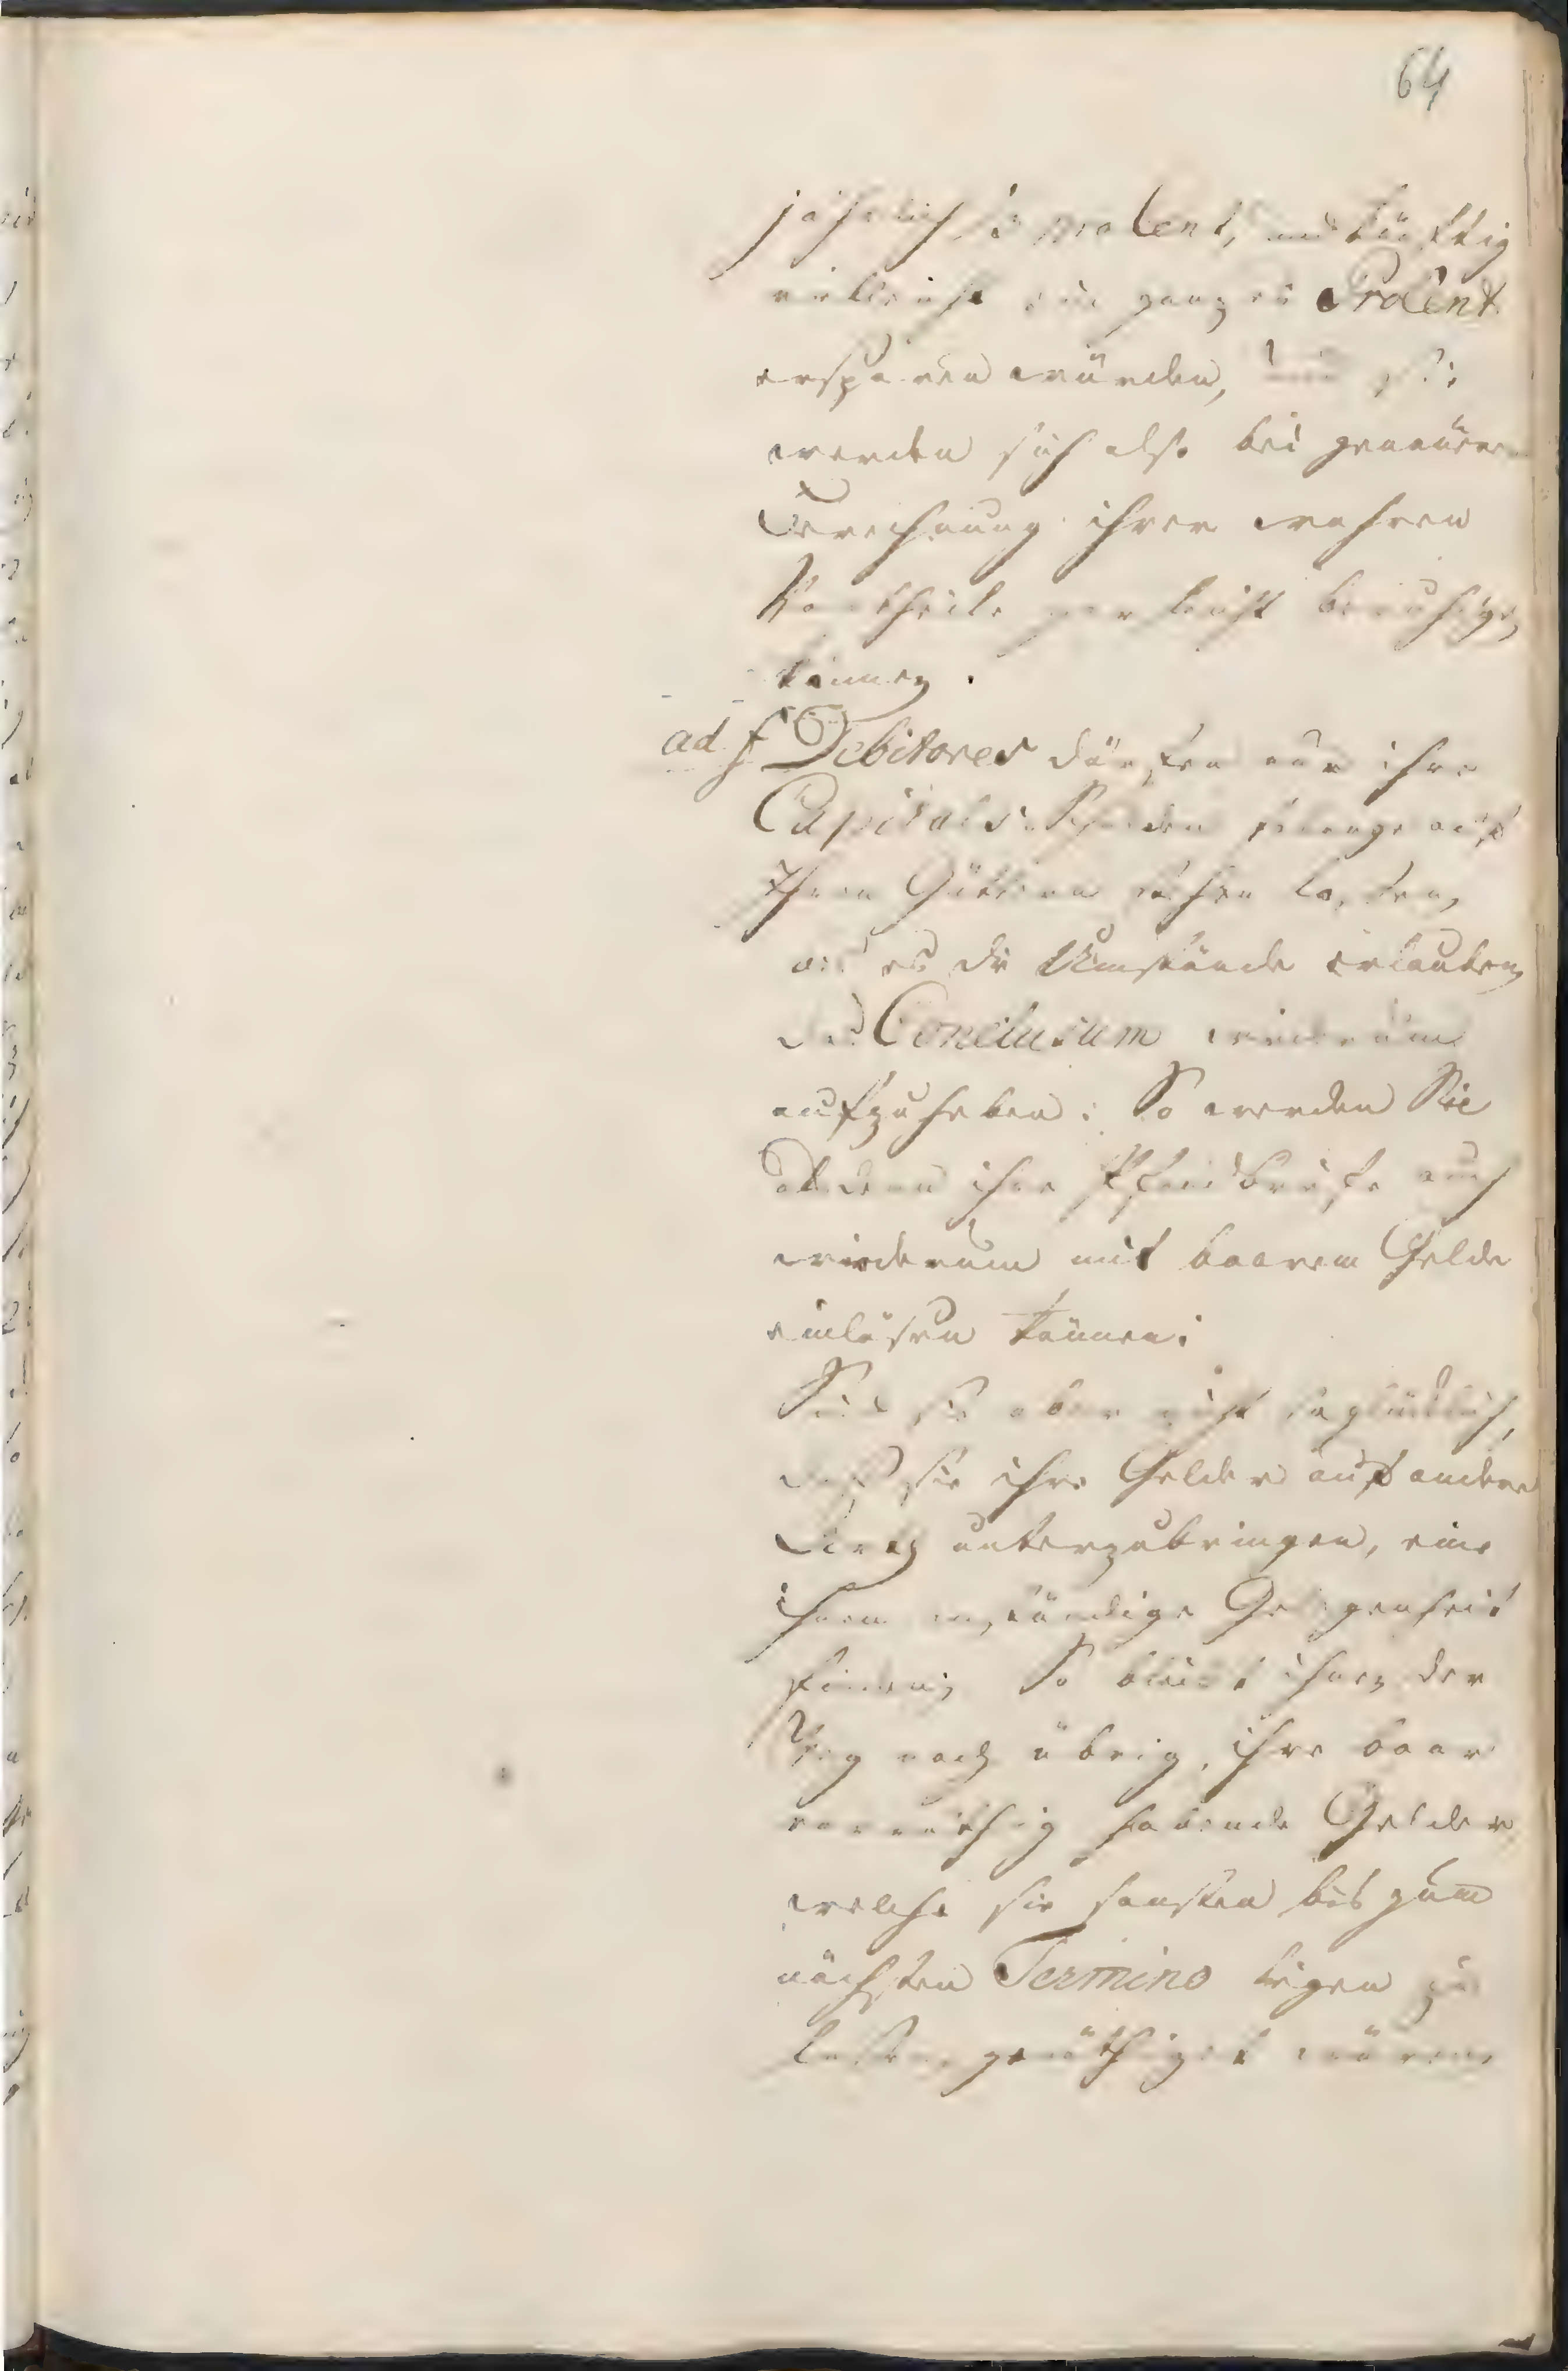 64
jährlich ½ pro Cent, und künftig
vielleicht ein ganzes Procent
ersparen würden, und sie
werden sich also bei genauerer
Berechnung ihrer wahren
Vortheile gar leicht beruhigen
können.
ad f Debitores dürfen nur ihre
Capitals Schulden so lange auf
Ihren Güttern stehen laßen,
als es die Umstände erlauben
das Conclusum wiederum
aufzuheben: So werden Sie
alsdenn ihre Pfandbriefe auch
wiederum mit baarem Gelde
einlösen können;
Sind sie aber nicht so glücklich,
daß sie ihre Gelder auf andere
Arth unterzubringen, eine
ihnen anständige Gelegenheit
finden; So bleibt ihnen der
Weg noch übrig, ihre baar
vorräthig habende Gelder
welche sie sonsten bis zum
nächsten Termino liegen zu
laßen, genöthiget wären,